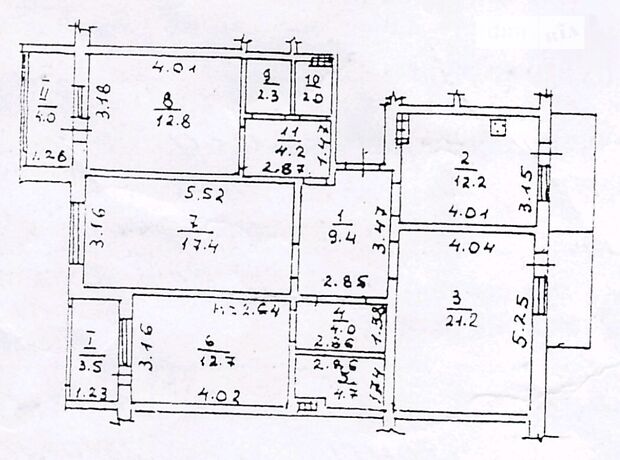 4.01
II
4.0
3.18
8
12.8
1.28
9
2.3
10
2.0
11
4.2
1.47
2.87
2
12.2
3.15
4.01
5.52
3.16
7
17.4
1
9.4
3.47
2.85
4.04
3
21.2
5.25
h=2.64
I
3.5
1.23
3.16
6
12.7
4.02
4
4.0
1.38
2.86
2.76
5
4.7
1.74